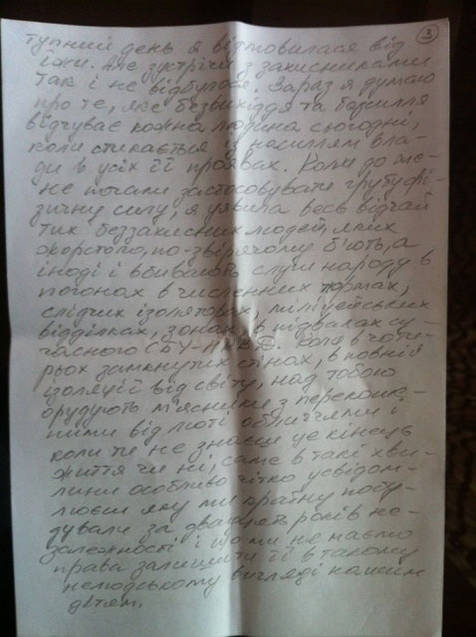 3
тупний день я відмовилася від
їжи. Але зустрічі з захисниками
так і не відбулося. Зараз я думаю
про те, яке безвихіддя та безсилля
відчуває кожна людина сьогодні,
коли стикається із насиллям вла-
ди в усіх її проявах. Коли до ме-
не почали застосовувати грубу фі-
зичну силу, я уявила весь відчай
тих беззахисних людей, яких
жорстоко, по-звірячому б'ють, а
іноді і вбивають слуги народу в
погонах в численних тюрмах,
слідчих ізоляторах, міліцейських
відділках, зонах, в підвалах су-
часного СБУ-НКВД. Коли в чоти-
рьох замкнутих стінах, в повній
ізоляції від світу, над тобою
орудують м'ясники з перекоше-
ними від люті обличчями і
коли ти не знаєш це кінець
життя чи ні, саме в такі хви-
лини особливо чітко усвідом-
люєш яку ми країну побу-
дували за двадцять років не-
залежності і що ми не маємо
права залишити її в такому
нелюдському вигляді нашим
дітям.